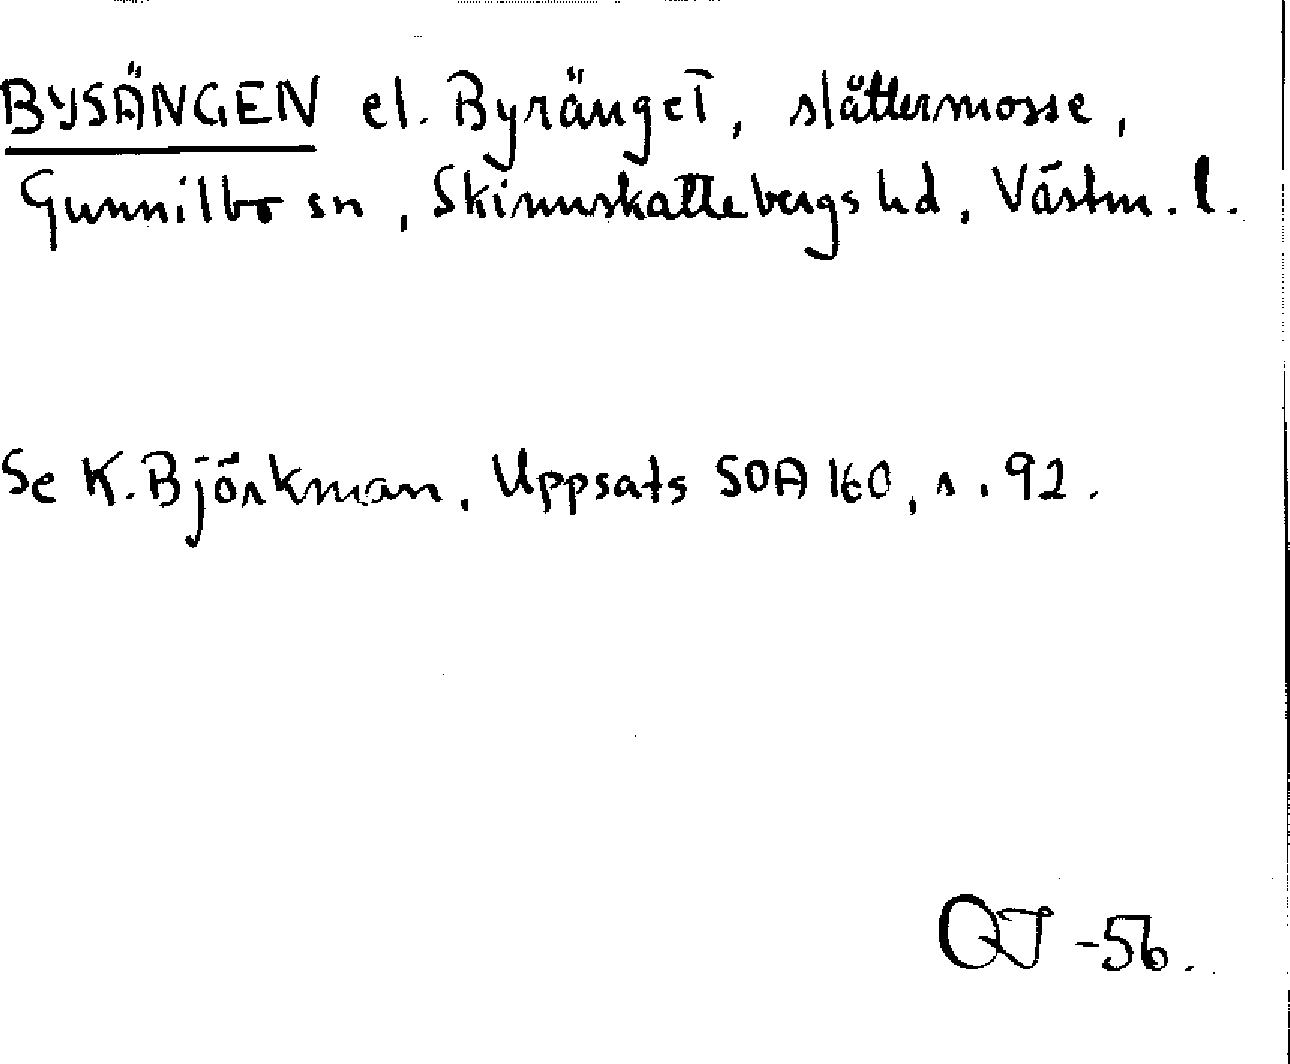 BYSÄNGEN el. Byränget, slåttermosse,
Gunnilbo sn, Skinnskattebergs hd, Västm. l.
Se K. Björkman, Uppsats SOA 160, s. 92.
QJ -56.